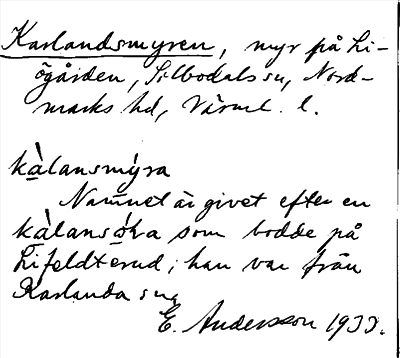 Karlandsmyren, myr på Li-
ögården, Silbodals sn, Nord-
marks hd, Värml. l.
kàlansmýra
Namnet är givet efter en
kàlansó̱ka som bodde på
Lifeldterud; han var från
Karlanda sn.
E. Andersson 1933.